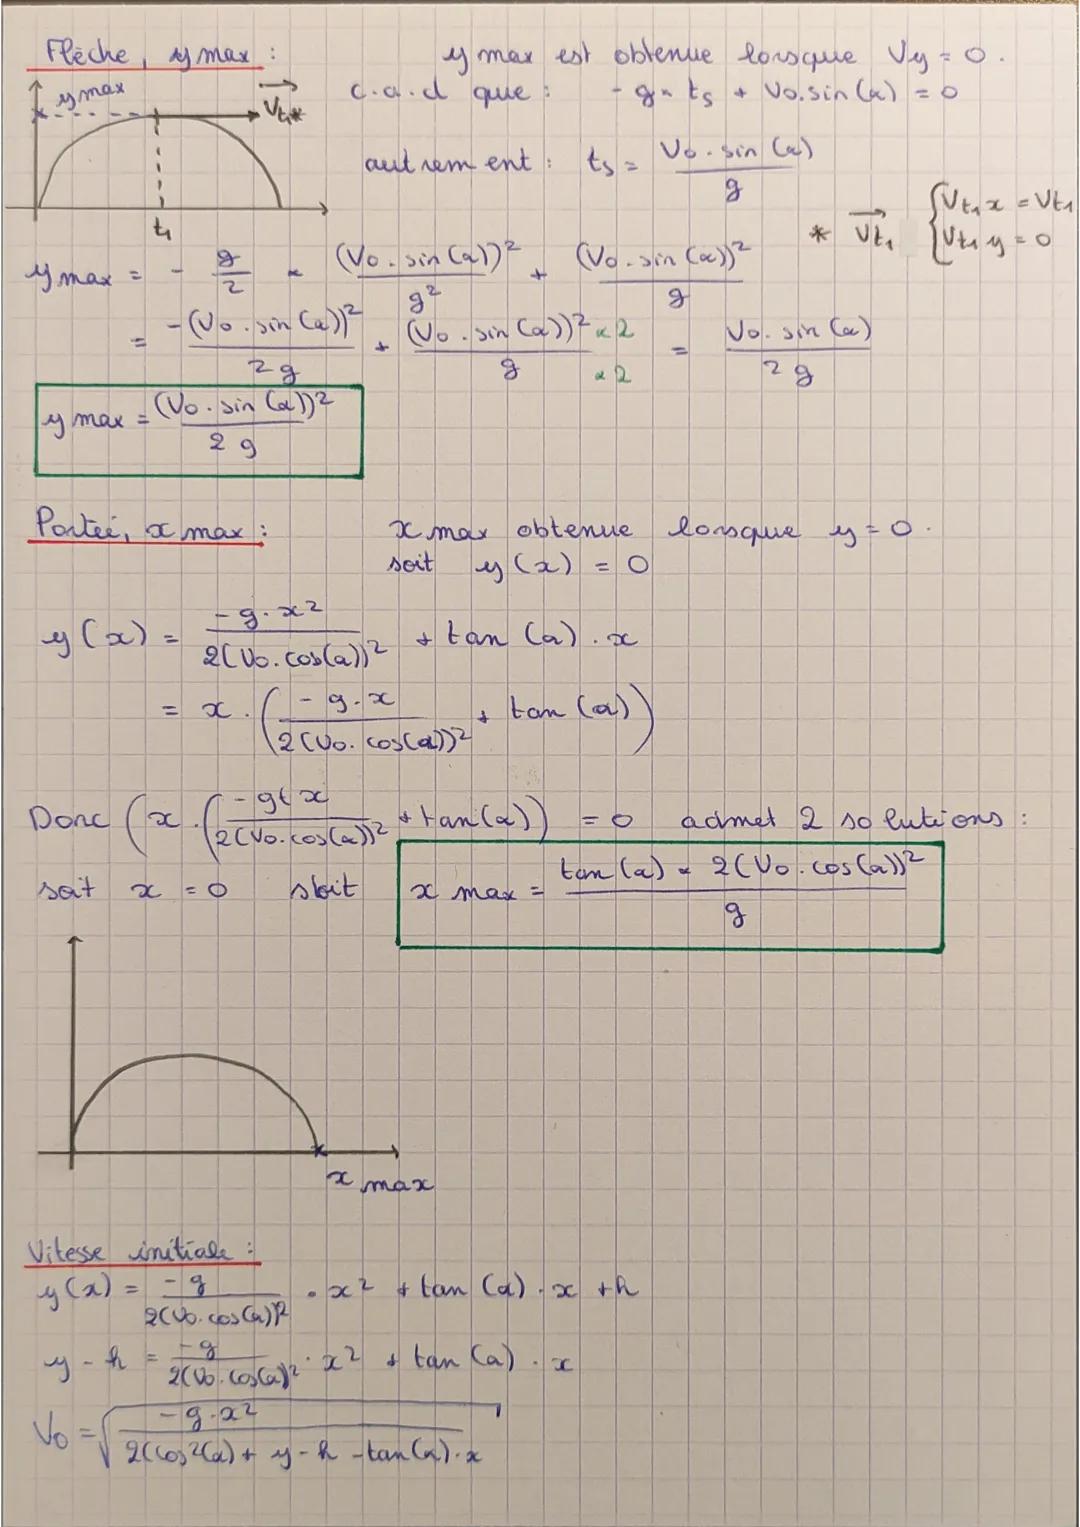 Flèche, y max :
y max est obtenue lorsque Vy = 0.
y max
Vt₁*
c.a.d que : - g × ts + Vo.sin(α) = 0
autrement : ts = Vo . sin (α) / g
t₁
* Vt₁ { Vt₁ x = Vt₁
Vt₁ y = 0
y max = - g/2 × (Vo . sin(α))² / g² + (Vo . sin(α))² / g
= -(Vo . sin(α))² / 2g + (Vo . sin(α))² × 2 / g × 2 = Vo . sin (α) / 2g
y max = (Vo . sin(α))² / 2g
Porteé, x max :
x max obtenue lorsque y = 0.
soit y (x) = 0
y (x) = -g . x² / 2(Vo . cos(α))² + tan (α) . x
= x . ( - g . x / 2(Vo . cos(α))² + tan (α))
Donc (x . ( -gt x / 2(Vo . cos(α))² + tan(α)) = 0 admet 2 solutions :
soit x = 0 soit x max = tan (α) × 2(Vo . cos(α))² / g
x max
Vitesse initiale :
y(x) = -g / 2(Vo . cos(α))² . x² + tan (α) . x + h
y - h = -g / 2(Vo . cos(α))² . x² + tan (α) . x
Vo = √ -g . x² / 2(cos²(α) + y - h - tan(α) . x